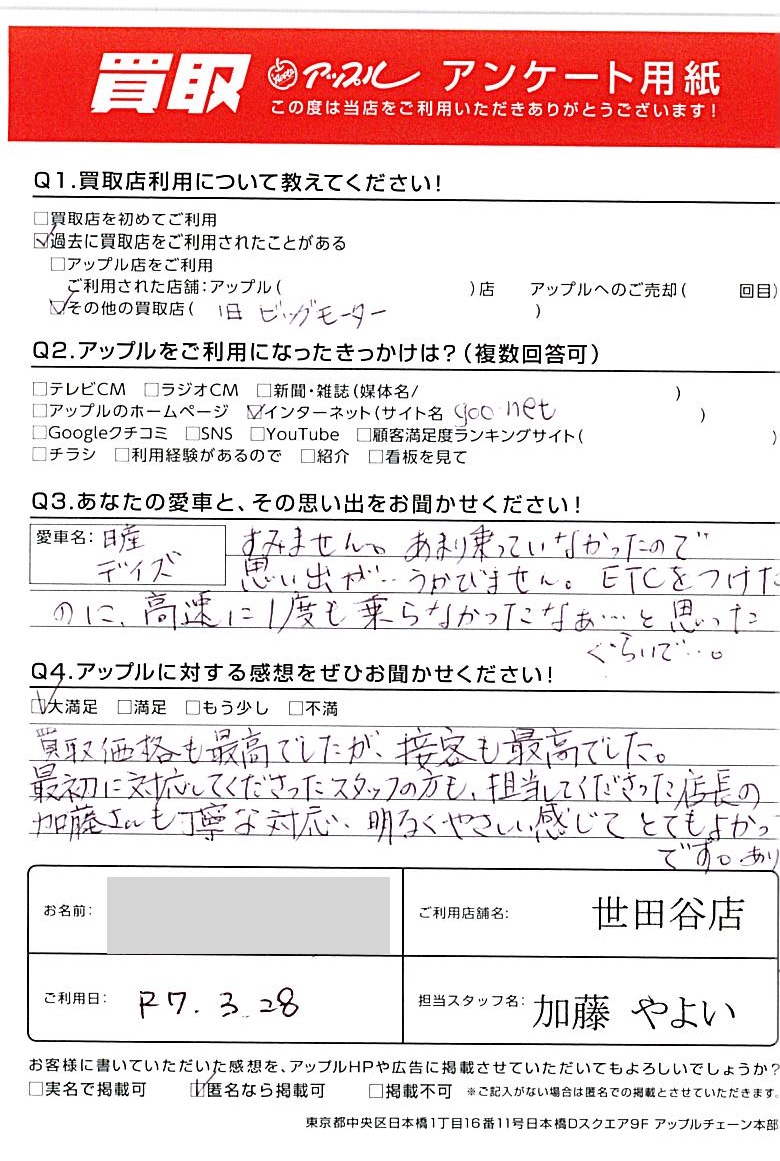 買取 アップル アンケート用紙
この度は当店をご利用いただきありがとうございます!
Q1.買取店利用について教えてください!
□買取店を初めてご利用
☑過去に買取店をご利用されたことがある
□アップル店をご利用
ご利用された店舗:アップル( )店 アップルへのご売却( 回目)
☑その他の買取店( 旧 ビッグモーター )
Q2.アップルをご利用になったきっかけは?(複数回答可)
□テレビCM □ラジオCM □新聞・雑誌(媒体名/ )
□アップルのホームページ ☑インターネット(サイト名 goo net )
□Googleクチコミ □SNS □YouTube □顧客満足度ランキングサイト( )
□チラシ □利用経験があるので □紹介 □看板を見て
Q3.あなたの愛車と、その思い出をお聞かせください!
愛車名: 日産 すみません。あまり乗っていなかったので
デイズ 思い出が…うかびません。ETCをつけた
のに、高速に1度も乗らなかったなぁ…と思った
ぐらいで…。
Q4.アップルに対する感想をぜひお聞かせください!
☑大満足 □満足 □もう少し □不満
買取価格も最高でしたが、接客も最高でした。
最初に対応してくださったスタッフの方も、担当してくださった店長の
加藤さんも丁寧な対応、明るくやさしい感じで とてもよかっ
です。あり
お名前: ご利用店舗名: 世田谷店
ご利用日: R7.3.28 担当スタッフ名: 加藤 やよい
お客様に書いていただいた感想を、アップルHPや広告に掲載させていただいてもよろしいでしょうか?
□実名で掲載可 ☑匿名なら掲載可 □掲載不可 ※ご記入がない場合は匿名での掲載とさせていただきます。
東京都中央区日本橋1丁目16番11号日本橋Dスクエア9F アップルチェーン本部